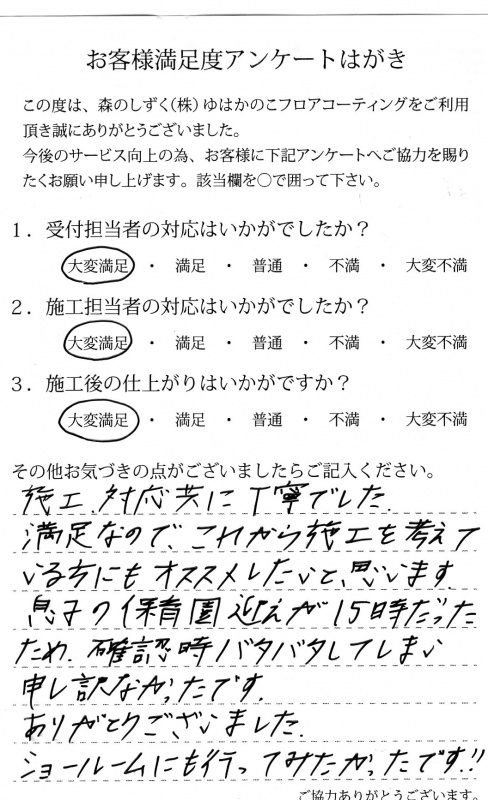 お客様満足度アンケートはがき
この度は、森のしずく(株)ゆはかのこフロアコーティングをご利用
頂き誠にありがとうございました。
今後のサービス向上の為、お客様に下記アンケートへご協力を賜り
たくお願い申し上げます。該当欄を〇で囲って下さい。
1. 受付担当者の対応はいかがでしたか？
大変満足 ・ 満足 ・ 普通 ・ 不満 ・ 大変不満
2. 施工担当者の対応はいかがでしたか？
大変満足 ・ 満足 ・ 普通 ・ 不満 ・ 大変不満
3. 施工後の仕上がりはいかがですか？
大変満足 ・ 満足 ・ 普通 ・ 不満 ・ 大変不満
その他お気づきの点がございましたらご記入ください。
施工、対応共に丁寧でした。
満足なので、これから施工を考えて
いる方にもオススメしたいと思います。
息子の保育園迎えが15時だった
ため、確認時バタバタしてしまい
申し訳なかったです。
ありがとうございました。
ショールームにも行ってみたかったです!!
ご協力ありがとうございます。